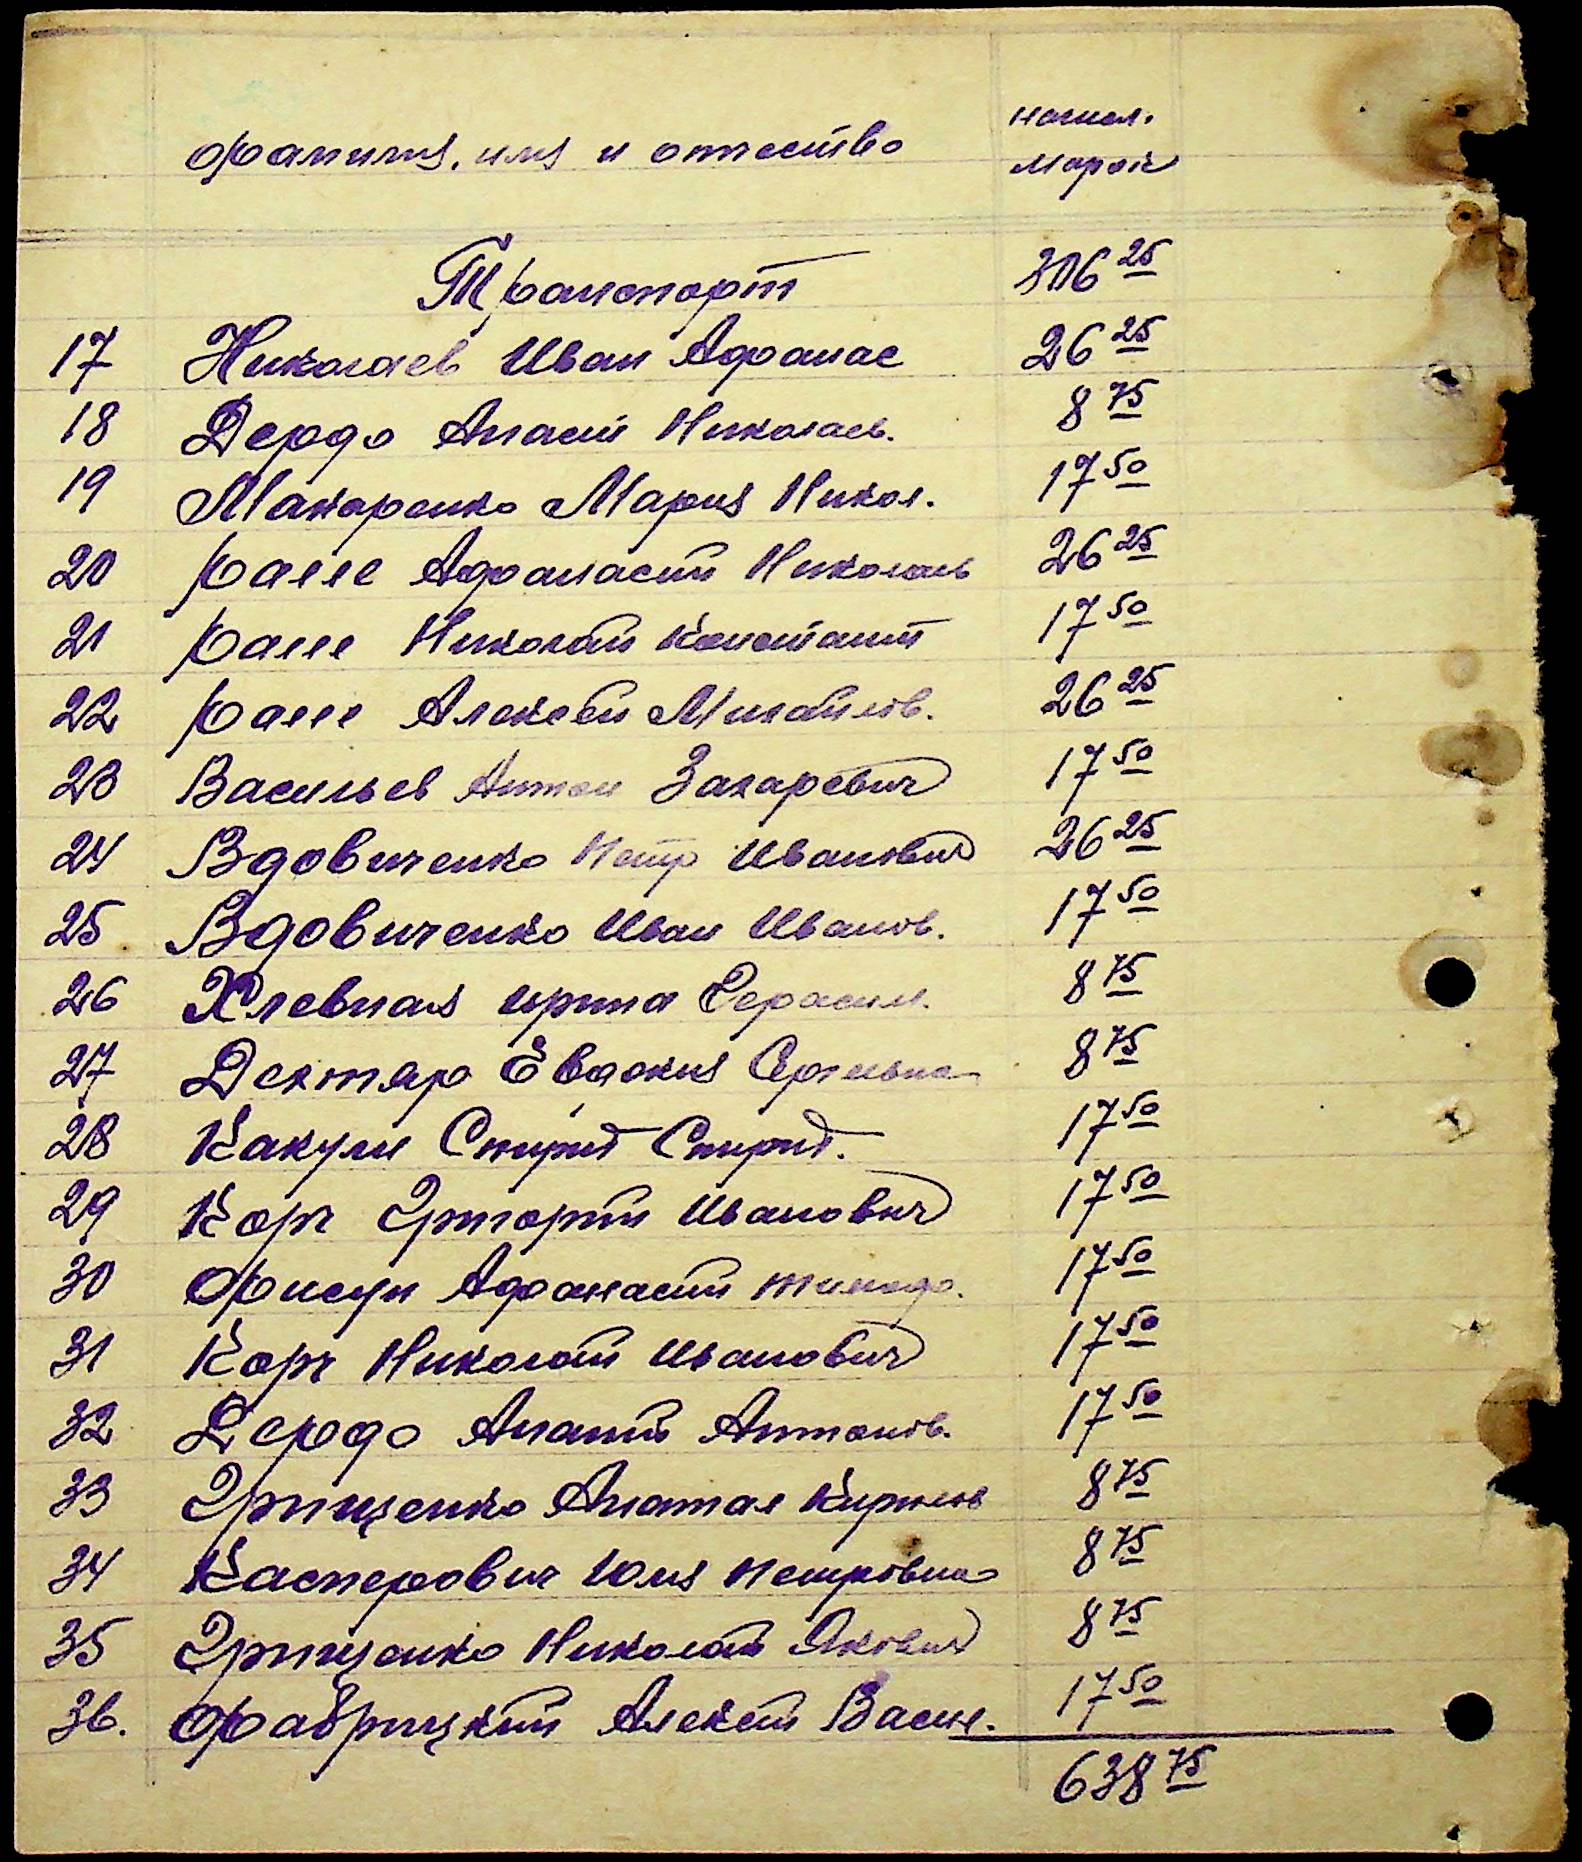 Фамилия, имя и отчество
колич.
марок
Транспорт 306 25
17 Николаев Иван Афанас 26 25
18 Дердо Анасий Николаев. 8 75
19 Макаренко Мария Никол. 17 50
20 Ралле Афанасий Николаев 26 25
21 Ралле Николай Констант 17 50
22 Ралле Алексей Михайлов. 26 25
23 Васильев Антон Захаревич 17 50
24 Вдовиченко Петр Иванович 26 25
25 Вдовиченко Иван Иванов. 17 50
26 Хлевная Ирина Герасим. 8 75
27 Дехтяр Евдокия Сергеевна 8 75
28 Какули Спирид Спирид. 17 50
29 Корч Григорий Иванович 17 50
30 Фисун Афанасий 17 50
31 Корч Николай Иванович 17 50
32 Дердо Антонов. 17 50
33 Грищенко Анатол Кирилов 8 75
34 Касперович Юлия Петровна 8 75
35 Грищенко Николай Якович 8 75
36. Фабрицкий Алексей Васил. 17 50
638 75